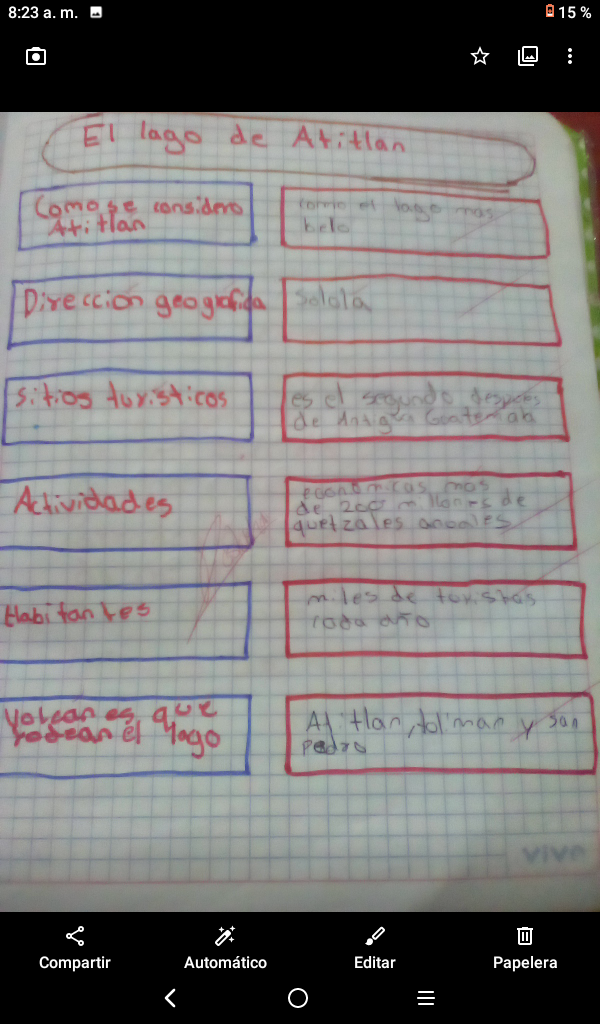 8:23 a. m.
15 %
El lago de Atitlan
Como se considero
Atitlan
como el lago mas
belo
Direccion geografica
Solola
Sitios turisticos
es el segundo despues
de Antigua Guatemala
Actividades
economicas mas
de 200 millones de
quetzales anuales
Habitantes
miles de turistas
cada año
Volcanes que
rodean el lago
Atitlan, toliman y san
Pedro
vivo
Compartir
Automático
Editar
Papelera